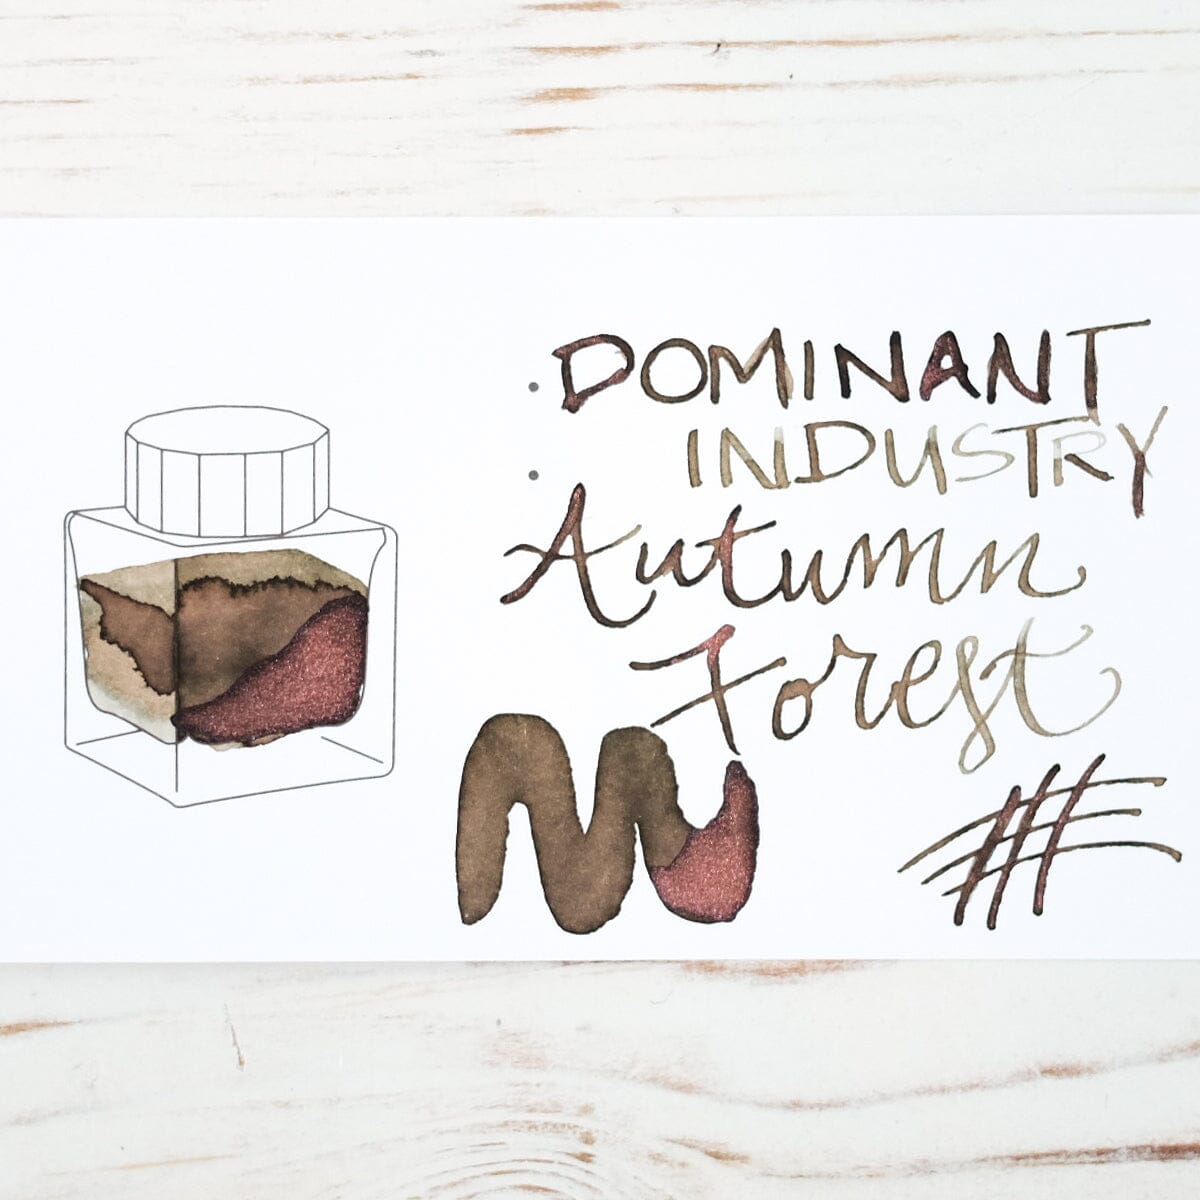 DOMINANT
INDUSTRY
Autumn
Forest